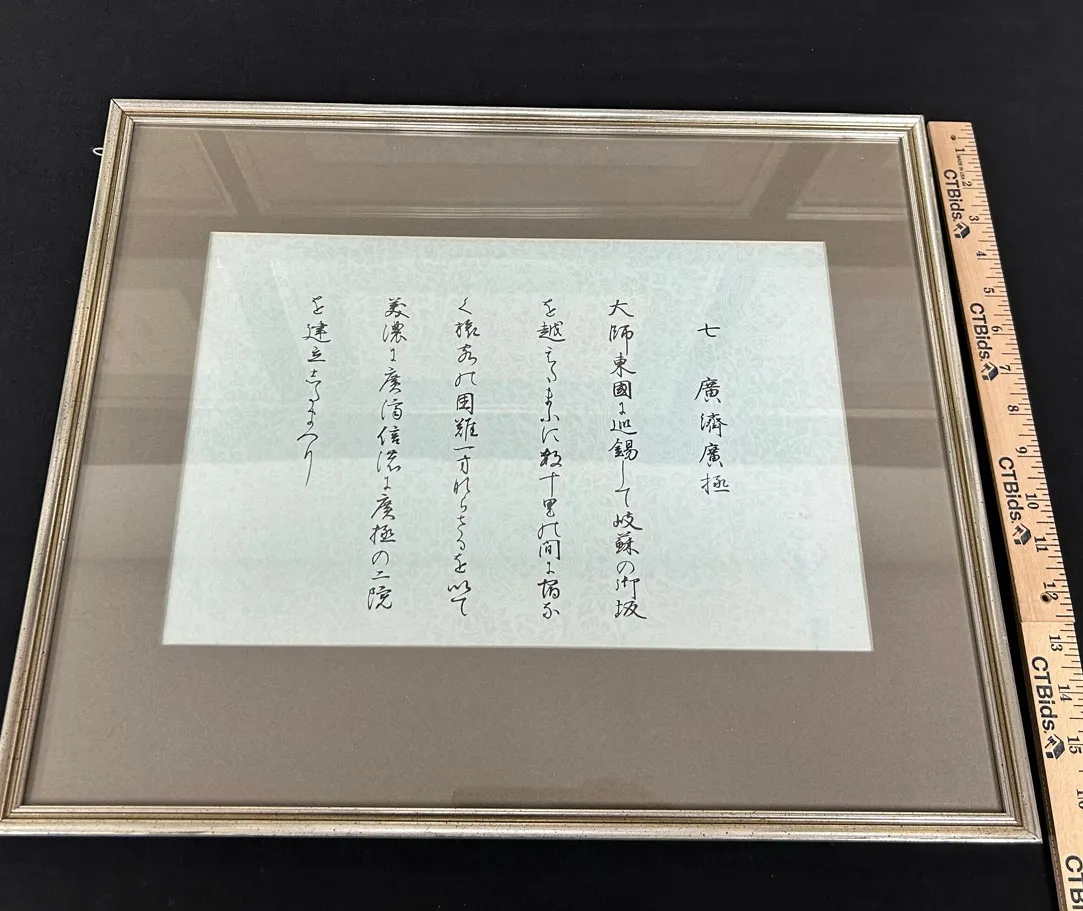 七 廣濟廣極
大師東國に巡錫して岐蘇の御坂
を越えたまふに数十里の間に宿な
く旅客の困難一方ならさるを以て
美濃に廣濟信濃に廣極の二院
を建立したまへり
1 2 3 4 5 6 7 8 9 10 11 12 13 14 15
CTBids.
CTBids.
CTBids.
CTBids.